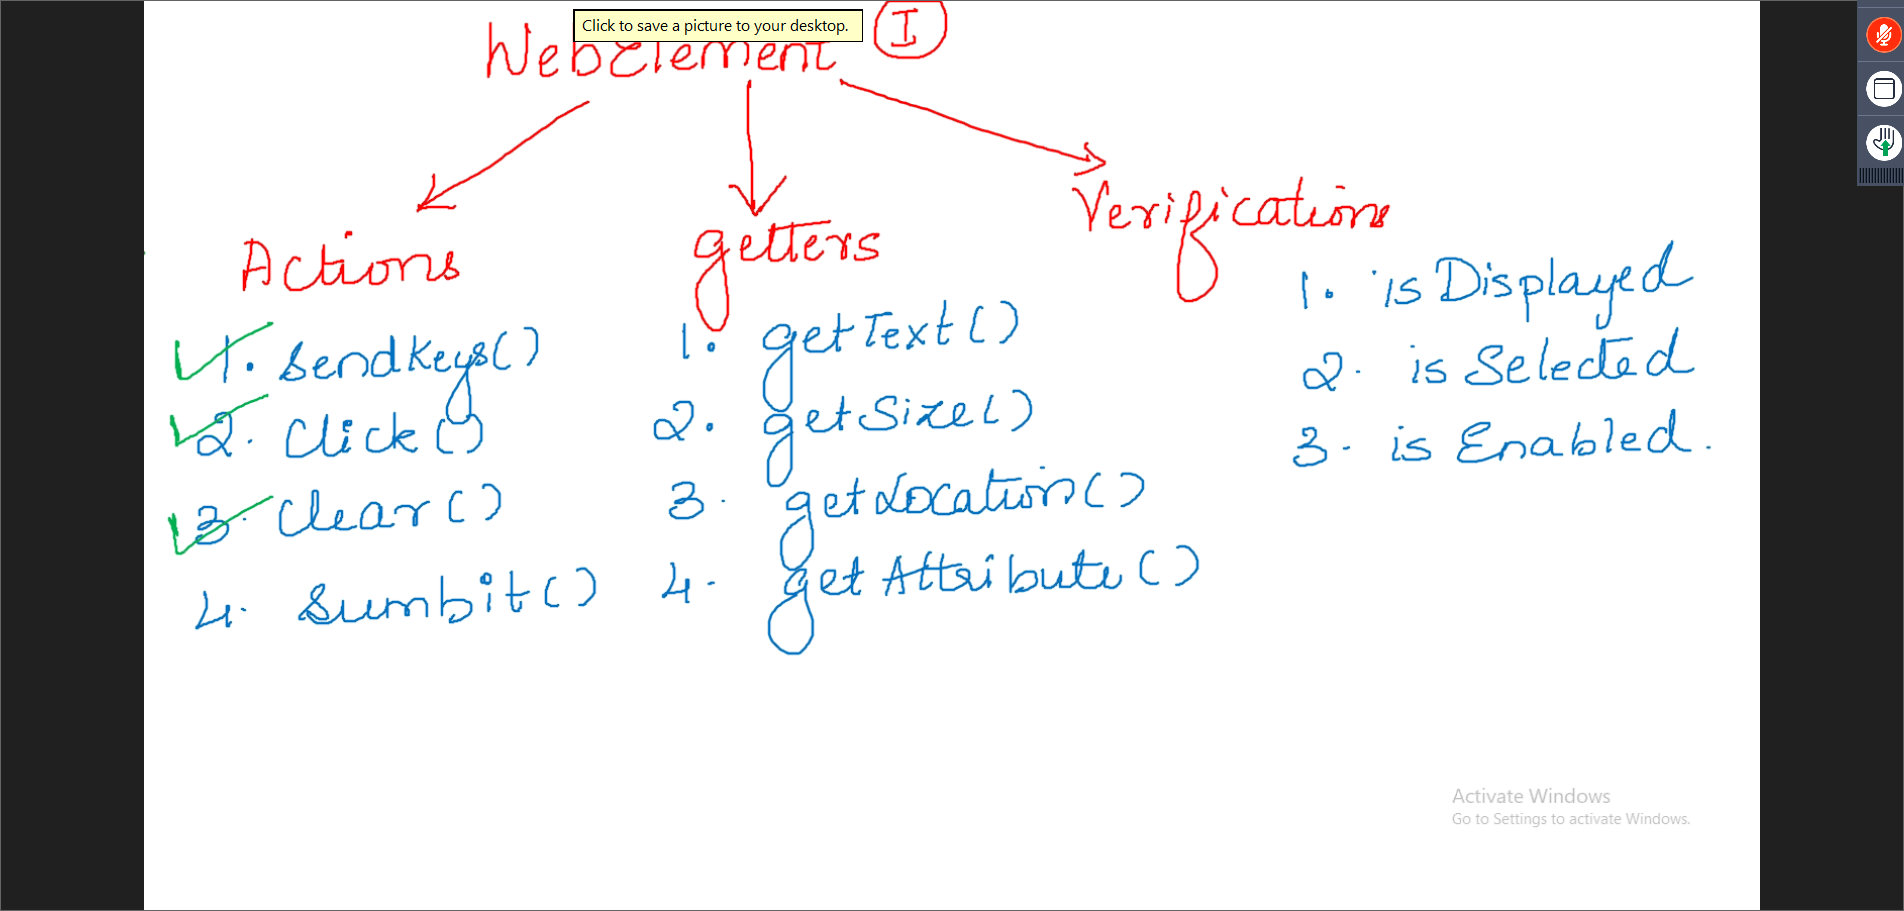 Click to save a picture to your desktop.
WebElement I
Actions
1. Sendkeys()
2. Click()
3. Clear()
4. Sumbit()
getters
1. getText()
2. getSize()
3. getLocation()
4. getAttribute()
Verifications
1. is Displayed
2. is Selected
3. is Enabled.
Activate Windows
Go to Settings to activate Windows.